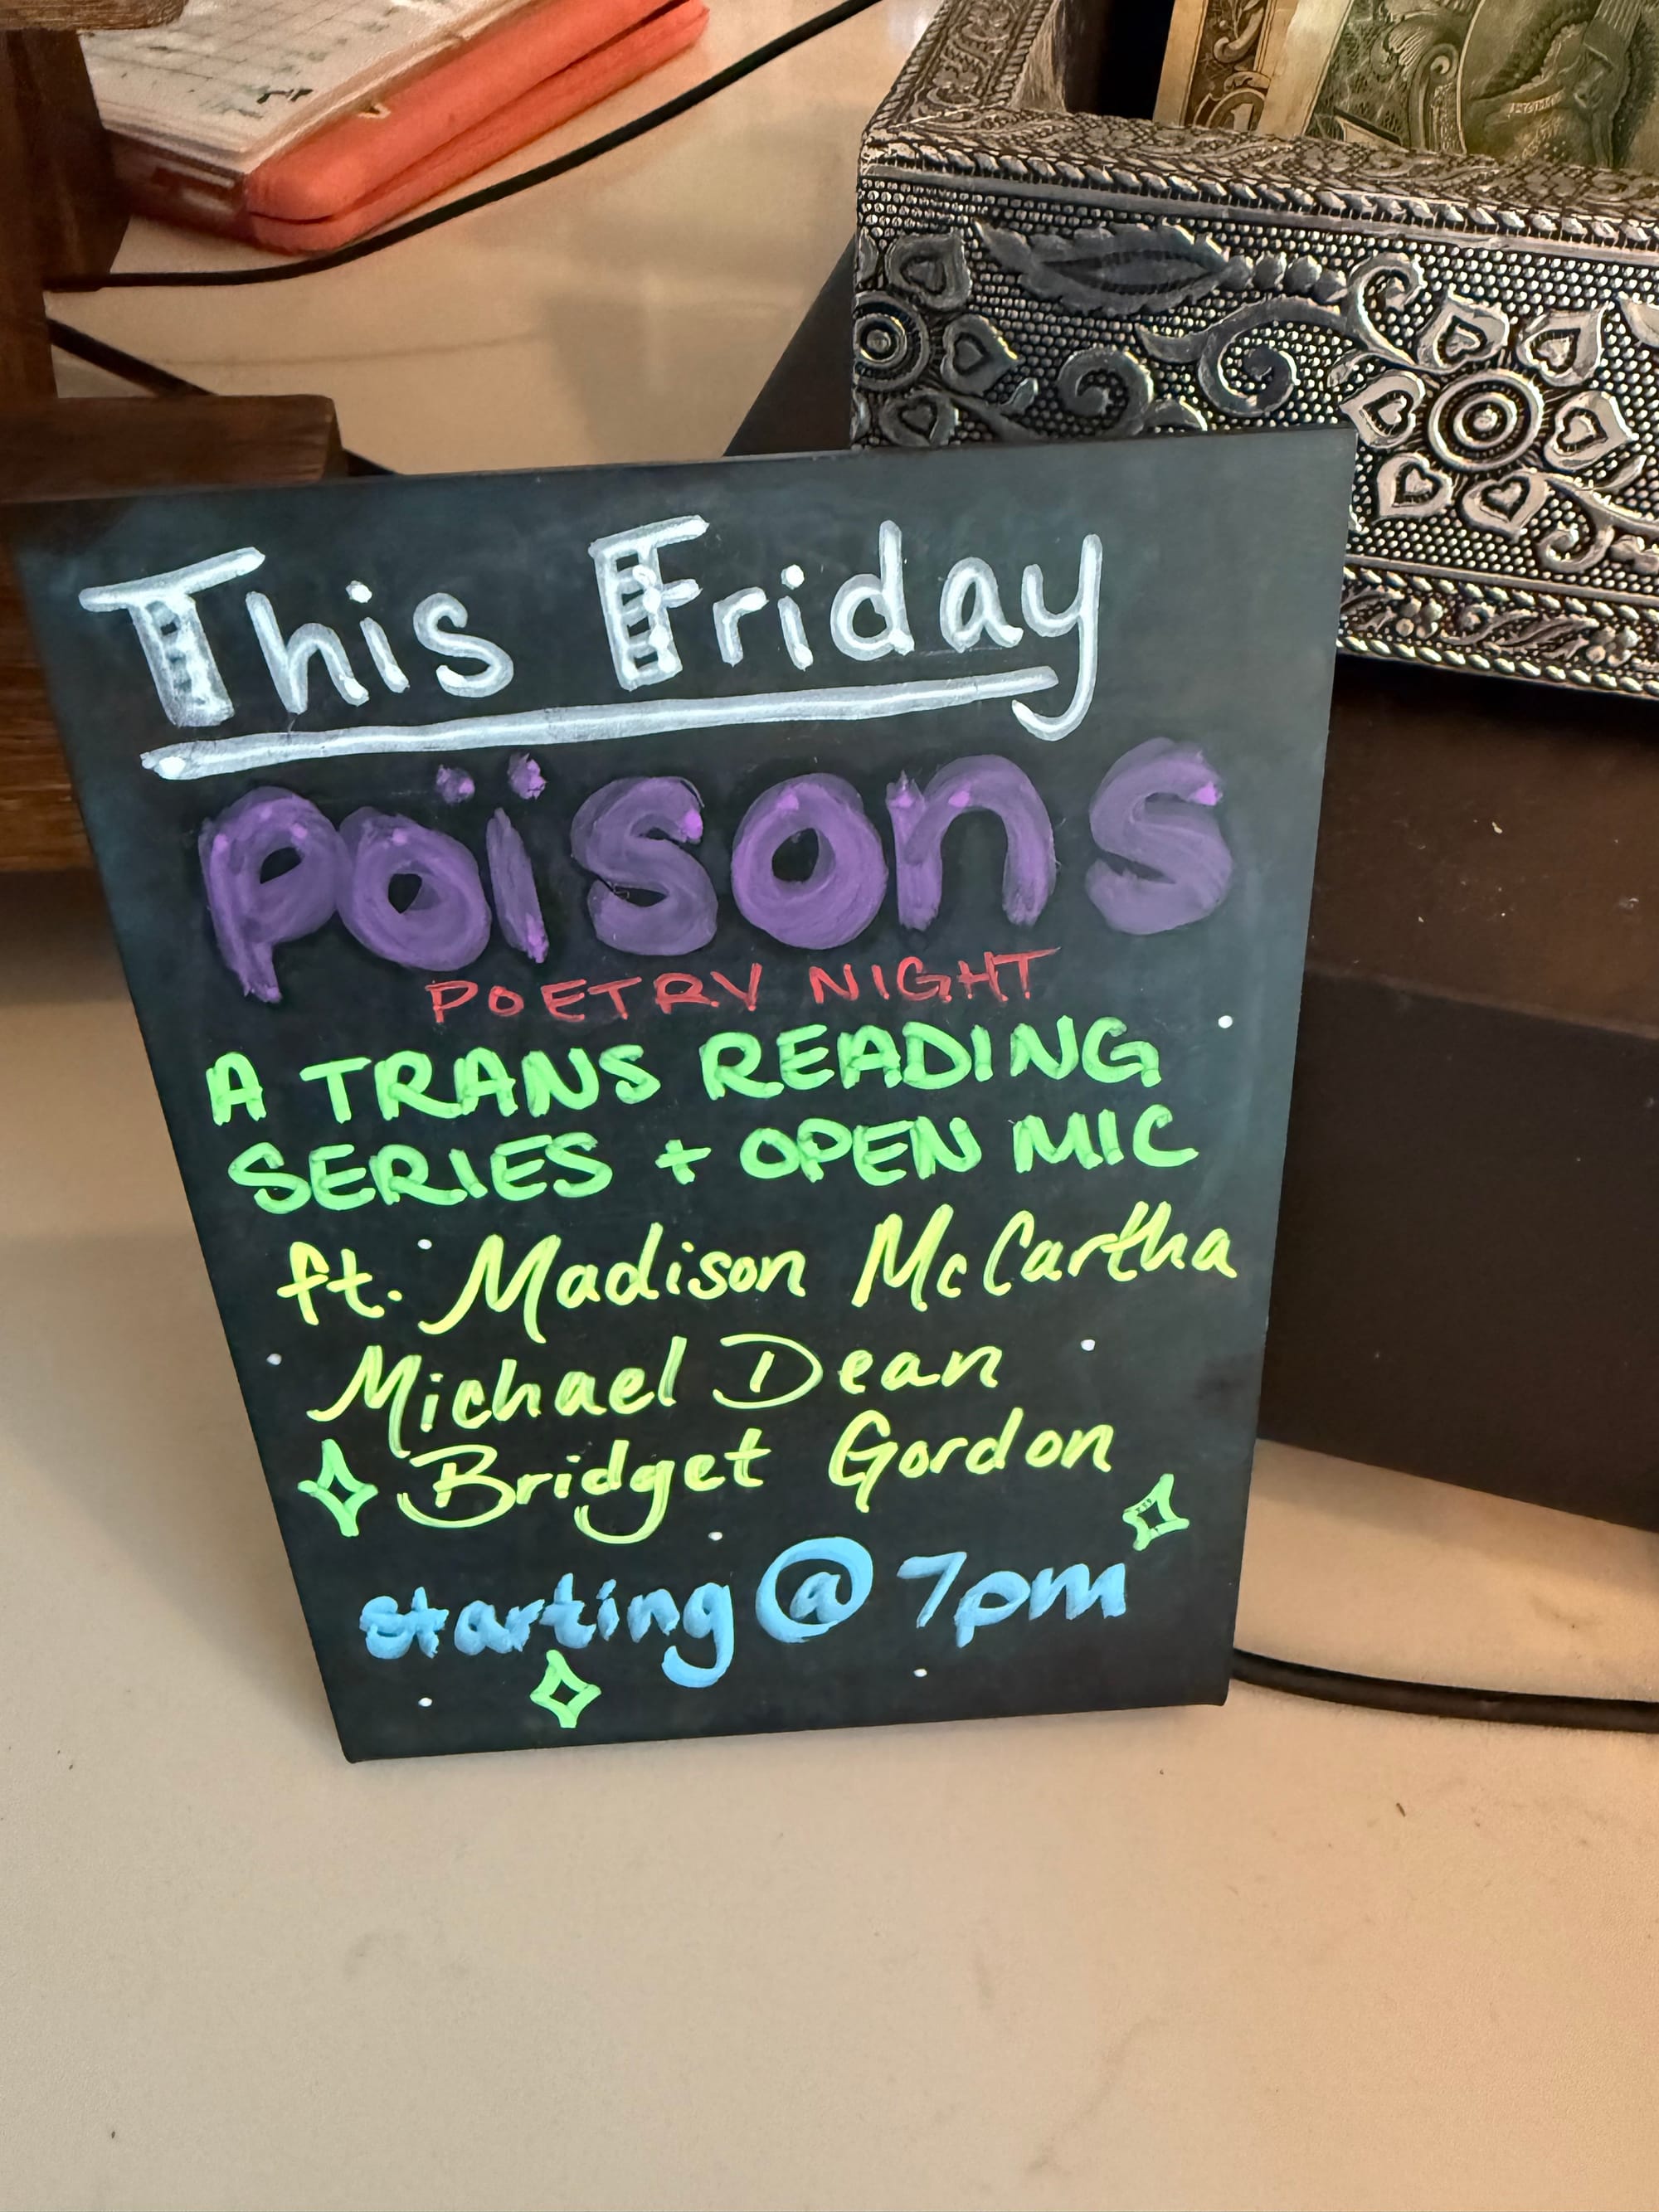 This Friday
poïsons
POETRY NIGHT
A TRANS READING
SERIES + OPEN MIC
ft. Madison McCartha
Michael Dean
Bridget Gordon
starting @ 7pm